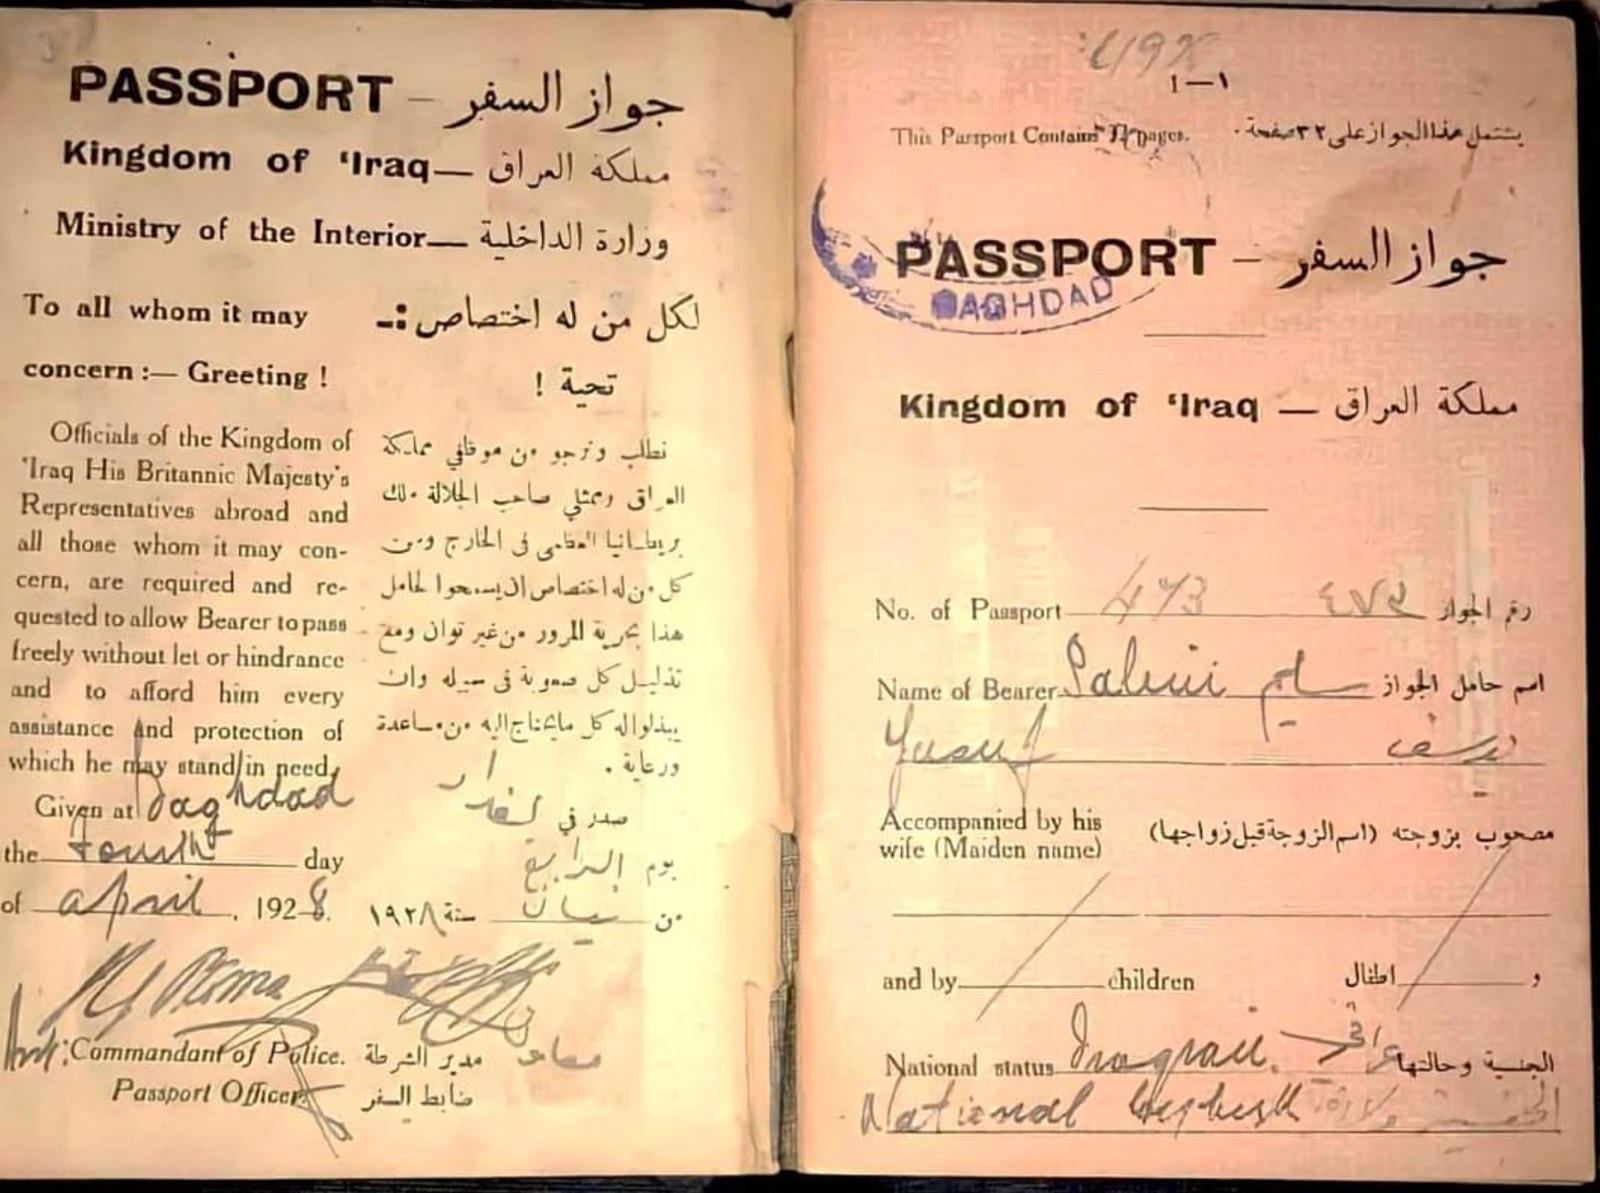 PASSPORT — جواز السفر
Kingdom of 'Iraq — مملكة العراق
Ministry of the Interior — وزارة الداخلية
To all whom it may
concern :— Greeting !
لكل من له اختصاص :-
تحية !
Officials of the Kingdom of
'Iraq His Britannic Majesty's
Representatives abroad and
all those whom it may con-
cern, are required and re-
quested to allow Bearer to pass
freely without let or hindrance
and to afford him every
assistance and protection of
which he may stand in need,
Given at Baghdad
the fourth day
of april, 1928.
نطلب ونرجو من موظفي مملكة
العراق وممثلي صاحب الجلالة ملك
بريطانيا العظمى في الخارج ومن
كل من له اختصاص ان يسمحوا لحامل
هذا بحرية المرور من غير توان ومع
تذليل كل صعوبة في سبيله وان
يبذلوا له كل مايحتاج اليه من مساعدة
ورعاية .
صدر في بغداد
يوم الرابع
من نيسان سنة ١٩٢٨
Commandant of Police. مدير الشرطة
Passport Officer. ضابط السفر
١—1
This Passport Contains pages. يشتمل هذا الجواز على ٣٢ صفحة .
PASSPORT — جواز السفر
BAGHDAD
Kingdom of 'Iraq — مملكة العراق
No. of Passport 473 ٤٧٣ رقم الجواز
Name of Bearer Salim سليم اسم حامل الجواز
Yusuf يوسف
Accompanied by his
wife (Maiden name)
مصحوب بزوجته (اسم الزوجة قبل زواجها)
and by children و اطفال
National status عراقي الجنسية وحالتها
National